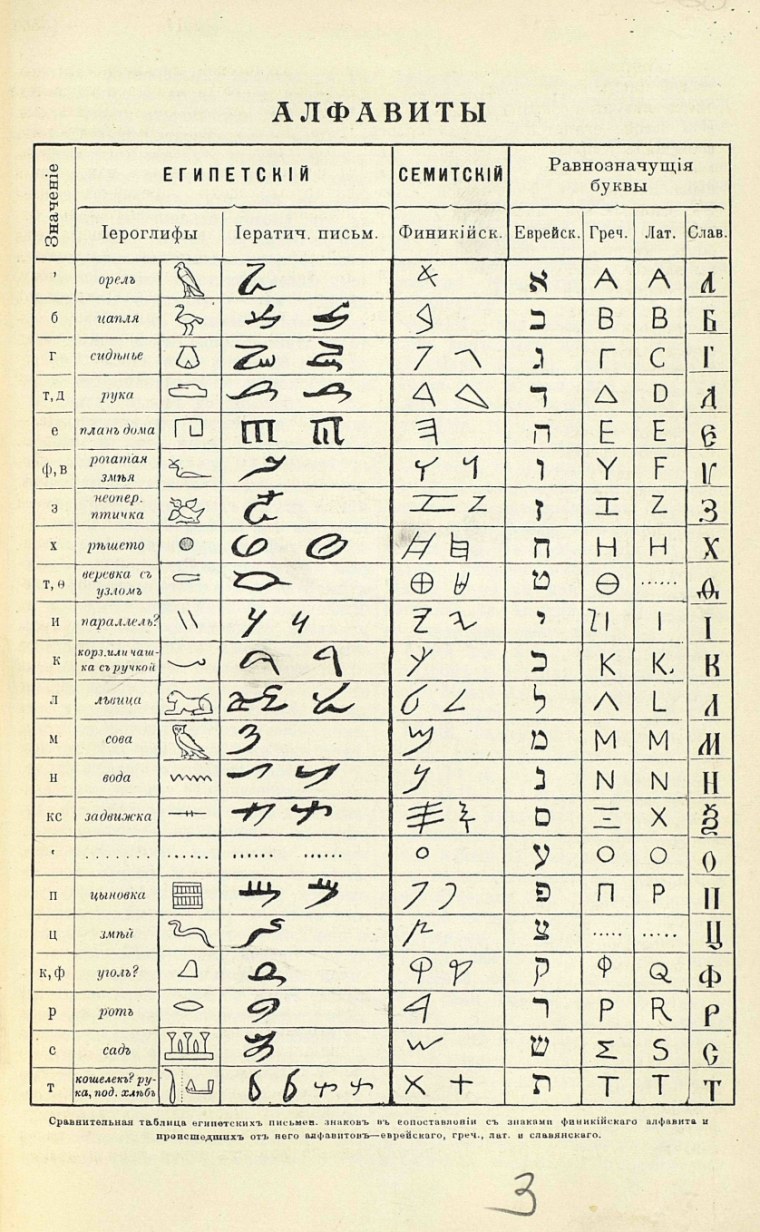 АЛФАВИТЫ
Значеніе
ЕГИПЕТСКІЙ СЕМИТСКІЙ Равнозначущія буквы
Іероглифы Іератич. письм. Финикійск. Еврейск. Греч. Лат. Слав.
’ орелъ א A A А
б цапля B B Б
г сидѣнье ג Γ C Г
т,д рука ד Δ D Д
е планъ дома ה E E Є
ф,в рогатая змѣя ו Y F Ѵ
з неопер. птичка ז Z З
х рѣшето ח H H Х
т,ѳ веревка съ узломъ ט Θ ...... Ѳ
и параллель? י I І
к корз.или чаш-ка съ ручкой כ K K. К
л львица ל Λ L Л
м сова מ M M М
н вода נ N N Н
кс задвижка ס Ξ X Ѯ
‘ ........ ...... ...... ...... ע O O О
п цыновка פ Π P П
ц змѣй צ ..... ..... Ц
к,ф уголъ? ק Φ Q Ф
р ротъ ר P R Р
с садъ ש Σ S С
т кошелекъ? ру-ка, под. хлѣбъ ת T T Т
Сравнительная таблица египетскихъ письмен. знаковъ въ сопоставленіи съ знаками финикійскаго алфавита и
происшедшихъ отъ него алфавитовъ—еврейскаго, греч., лат. и славянскаго.
3